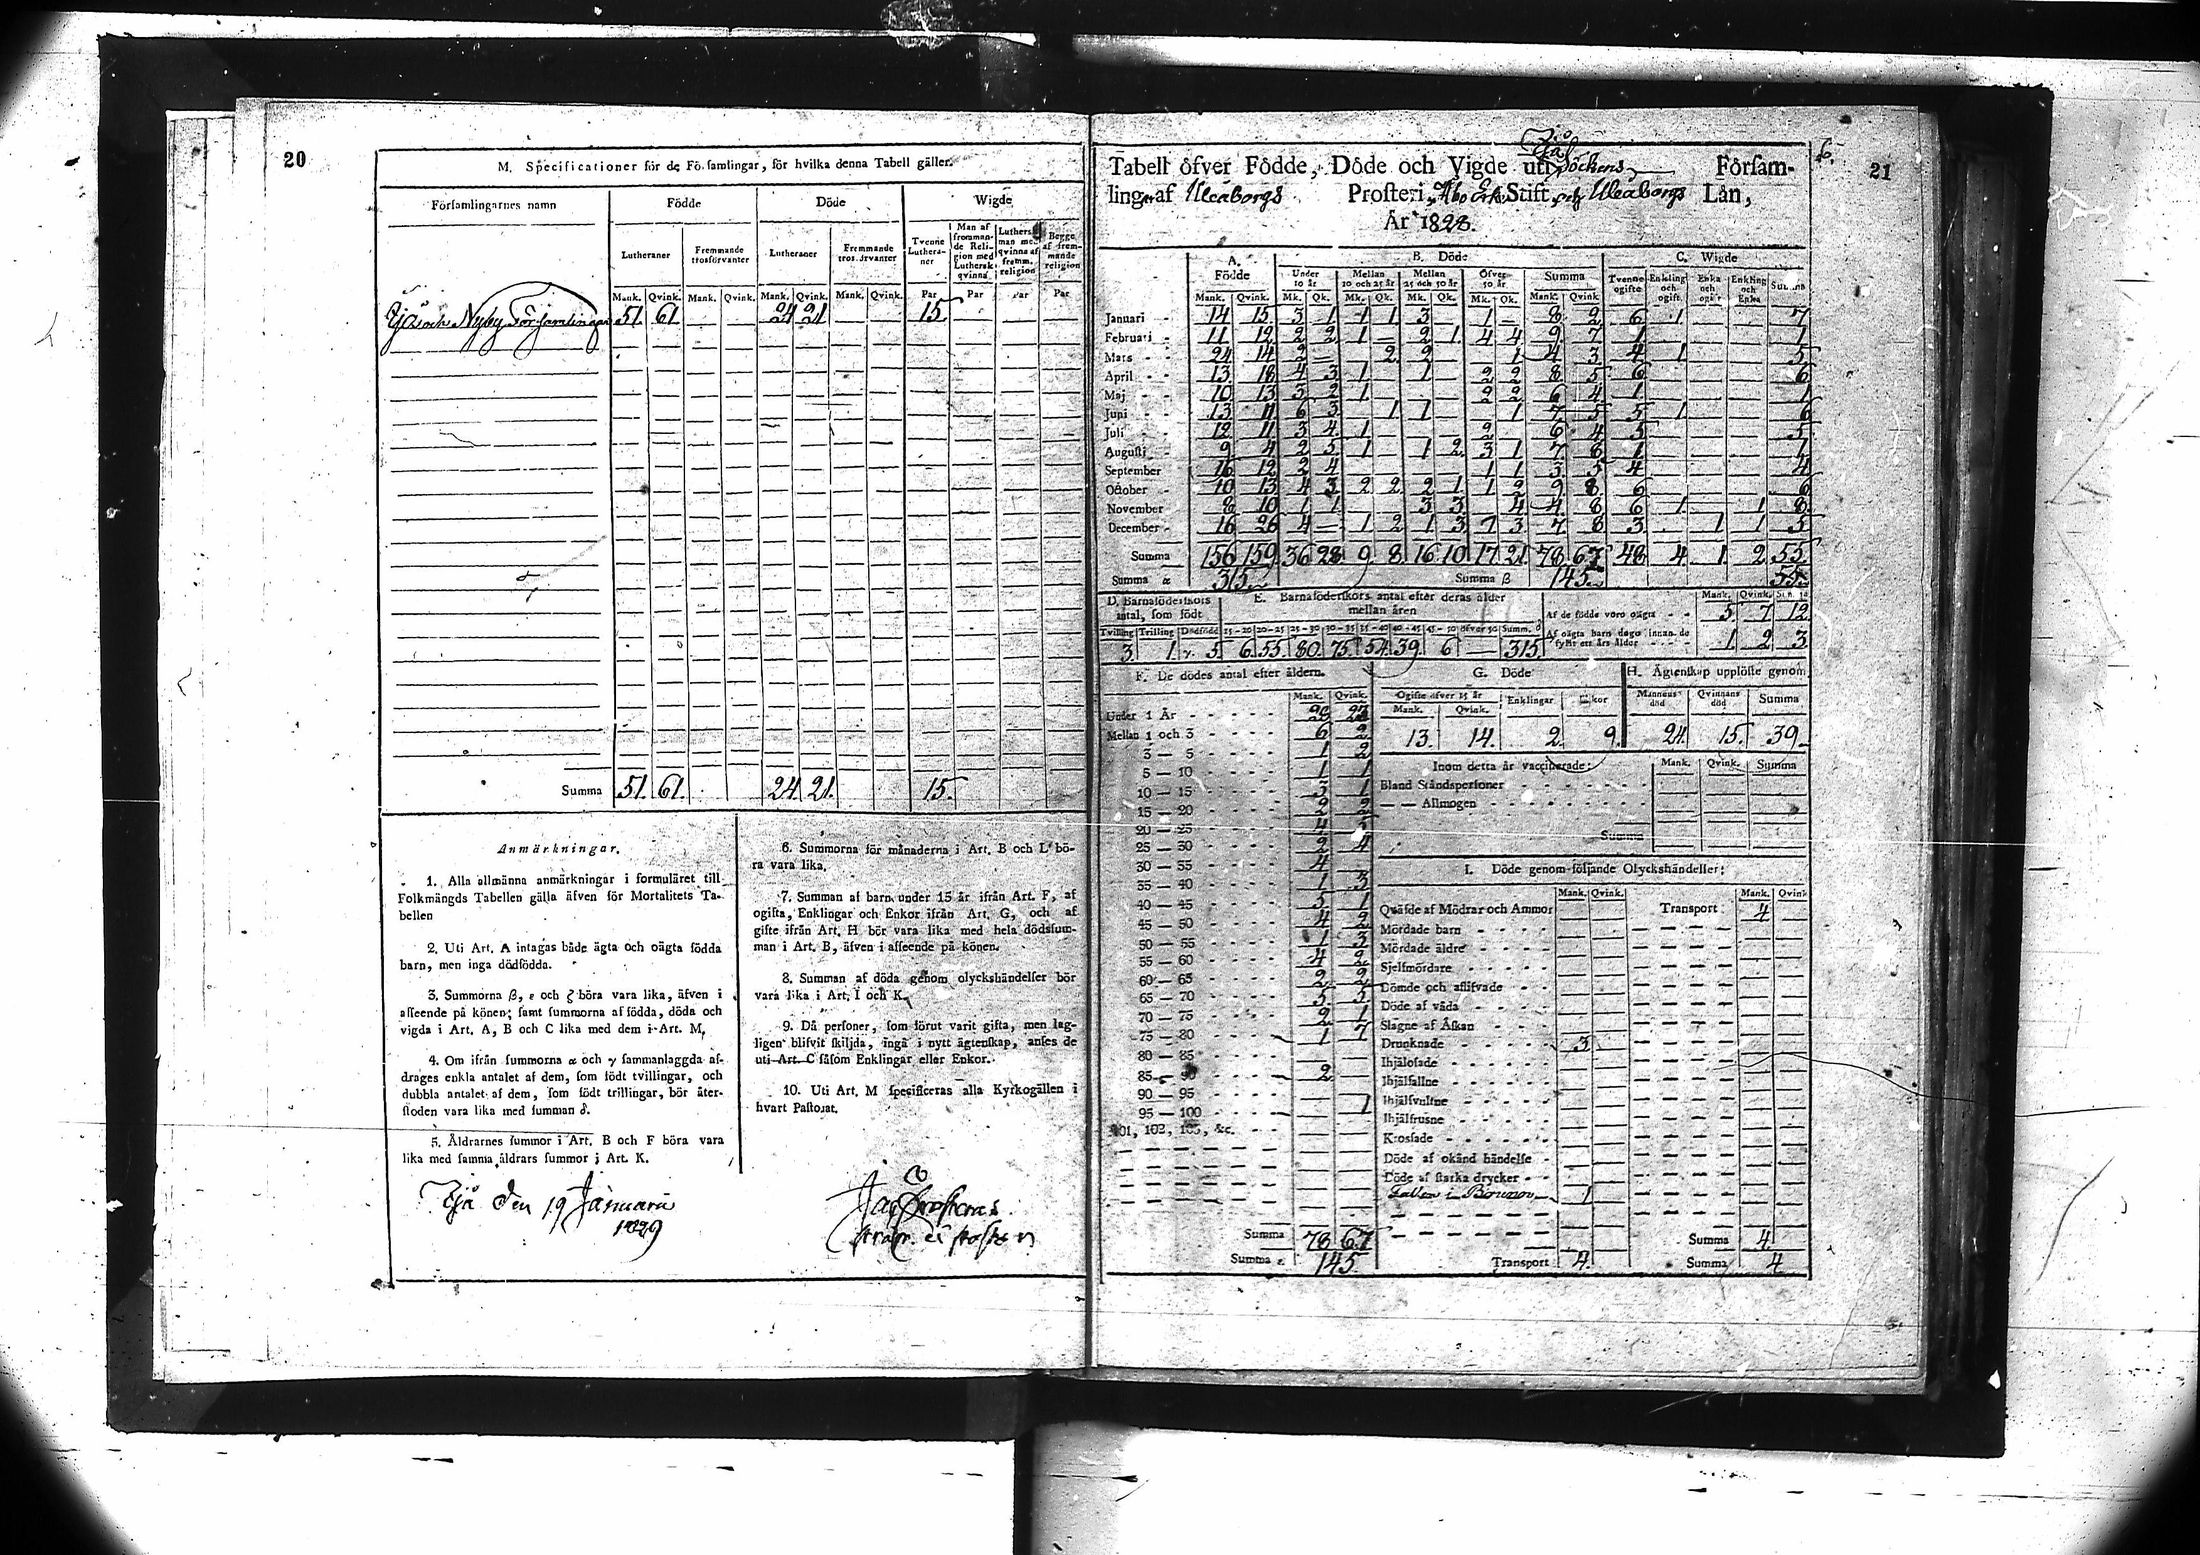 20
M. Specificationer för de Församlingar, för hvilka denna Tabell gäller.
Församlingarnes namn Födde Döde Wigde
Lutheraner Fremmande trosförvanter Lutheraner Fremmande trosförvanter Tvenne Lutheraner Man af frommande Religion med Luthersk qvinna Luthersk man med qvinna af fremm. religion Begge af fremmande religion
Mank. Qvink. Mank. Qvink. Mank. Qvink. Mank. Qvink. Par Par Par Par
Ijå och Nyby Församlingar 51. 61. 24 21 15.
Summa 51. 61. 24. 21. 15.
Anmärkningar.
1. Alla allmänna anmärkningar i formuläret till
Folkmängds Tabellen gälla äfven för Mortalitets Ta-
bellen
2. Uti Art. A intagas både ägta och oägta födda
barn, men inga dödfödda.
3. Summorna β, ε och ζ böra vara lika, äfven i
afseende på könen; samt summorna af födda, döda och
vigda i Art. A, B och C lika med dem i Art. M,
4. Om ifrån summorna α och γ sammanlaggda af-
drages enkla antalet af dem, som födt tvillingar, och
dubbla antalet af dem, som födt trillingar, bör åter-
stoden vara lika med summan δ.
5. Åldrarnes summor i Art. B och F böra vara
lika med samma åldrars summor i Art. K.
6. Summorna för månaderna i Art. B och L bö-
ra vara lika.
7. Summan af barn under 15 år ifrån Art. F, af
ogifta, Enklingar och Enkor ifrån Art. G, och af
gifte ifrån Art. H bör vara lika med hela dödssum-
man i Art. B, äfven i afseende på könen.
8. Summan af döda genom olyckshändelser bör
vara lika i Art. I och K.
9. Då personer, som förut varit gifta, men lag-
ligen blifvit skiljda, ingå i nytt ägtenskap, anses de
uti Art. C såsom Enklingar eller Enkor.
10. Uti Art. M specificeras alla Kyrkogällen i
hvart Pastorat.
Ijå den 19 Januarii
1829
21
Tabell öfver Födde, Döde och Vigde uti Ijå Söckens Försam-
ling af Uleåborgs Prosteri, Åbo Erke Stift, och Uleåborgs Län,
År 1828.
A. Födde B. Döde C. Wigde
Under 10 år Mellan 10 och 25 år Mellan 25 och 50 år Öfver 50 år Summa Tvenne ogifte Enkling och ogift Enka och ogift Enkling och Enka Summa
Mank. Qvink. Mk. Qk. Mk. Qk. Mk. Qk. Mk. Qk. Mank. Qvink
Januari 14 15 3 1 1 1 3 1 8 2 6 1 7
Februari 11 12 2 2 1 2 1 4 4 9 7 1 1
Mars 24 14 2 2 2 1 4 3 4 1 5
April 13 18 4 3 1 1 2 2 8 5 6 6
Maj 10 13 3 2 1 2 2 6 4 1 1
Juni 13 11 6 3 1 1 1 7 5 5 1 6
Juli 12 11 3 4 1 2 6 4 5 5
Augusti 9 4 2 5 1 1 2 3 1 7 8 1 1
September 16 12 2 4 1 1 3 5 4 4
October 10 13 4 3 2 2 2 1 1 2 9 8 6 6
November 8 10 1 1 3 3 4 4 8 6 1 1 8
December 16 26 4 1 2 1 3 1 3 7 8 3 1 1 5
Summa 156 159 36 28 9 8 16 10 17 21 78 67 48 4 1 2 55
Summa α 315 Summa β 145 55
D. Barnaföderskors antal, som födt E. Barnaföderskors antal efter deras ålder mellan åren
Mank. Qvink.
Af de födde voro oägta 5 7 12
Af oägta barn dogo innan de fyllt ett års ålder 1 2 3
Tvilling Trilling Dödfödd 15-20 20-25 25-30 30-35 35-40 40-45 45-50 öfver 50 Summ. δ
3. 1. 5 6. 55. 80. 75. 54. 39. 6 315
F. De dödes antal efter åldern. G. Döde H. Ägtenskap upplöste genom
Ogifte öfver 15 år Enklingar Enkor Mannens död Qvinnans död Summa
Mank. Qvink.
13. 14. 2. 9. 24. 15. 39.
Mank. Qvink.
Under 1 År
Mellan 1 och 3 6 2
3 — 5 1 2
5 — 10 1 1
10 — 15 3 1
15 — 20 2 2
20 — 25 4
25 — 30 2 4
30 — 35 4
35 — 40 1 3
40 — 45 5 1
45 — 50 4 2
50 — 55 1 3
55 — 60 4 2
60 — 65 2 2
65 — 70 5 5
70 — 75 2 1
75 — 80 1 7
80 — 85
85 — 90 2
90 — 95 1
95 — 100
101, 102, 103, &c.
Summa 78 67
Summa ε. 145
Inom detta år vaccinerade: Mank. Qvink. Summa
Bland Ståndspersoner
— — Allmogen
Summa
I. Döde genom följande Olyckshändelser:
Mank. Qvink. Mank. Qvink
Qväfde af Mödrar och Ammor Transport 4
Mördade barn
Mördade äldre
Sjelfmördare
Dömde och aflifvade
Döde af våda
Slagne af Åskan
Drunknade 3
Ihjälofade
Ihjälfallne
Ihjälfvultne
Ihjälfrusne
Krossade
Döde af okänd händelse
Döde af starka drycker
Fallen i Brunn 1
Summa 4
Transport 4. Summa 4